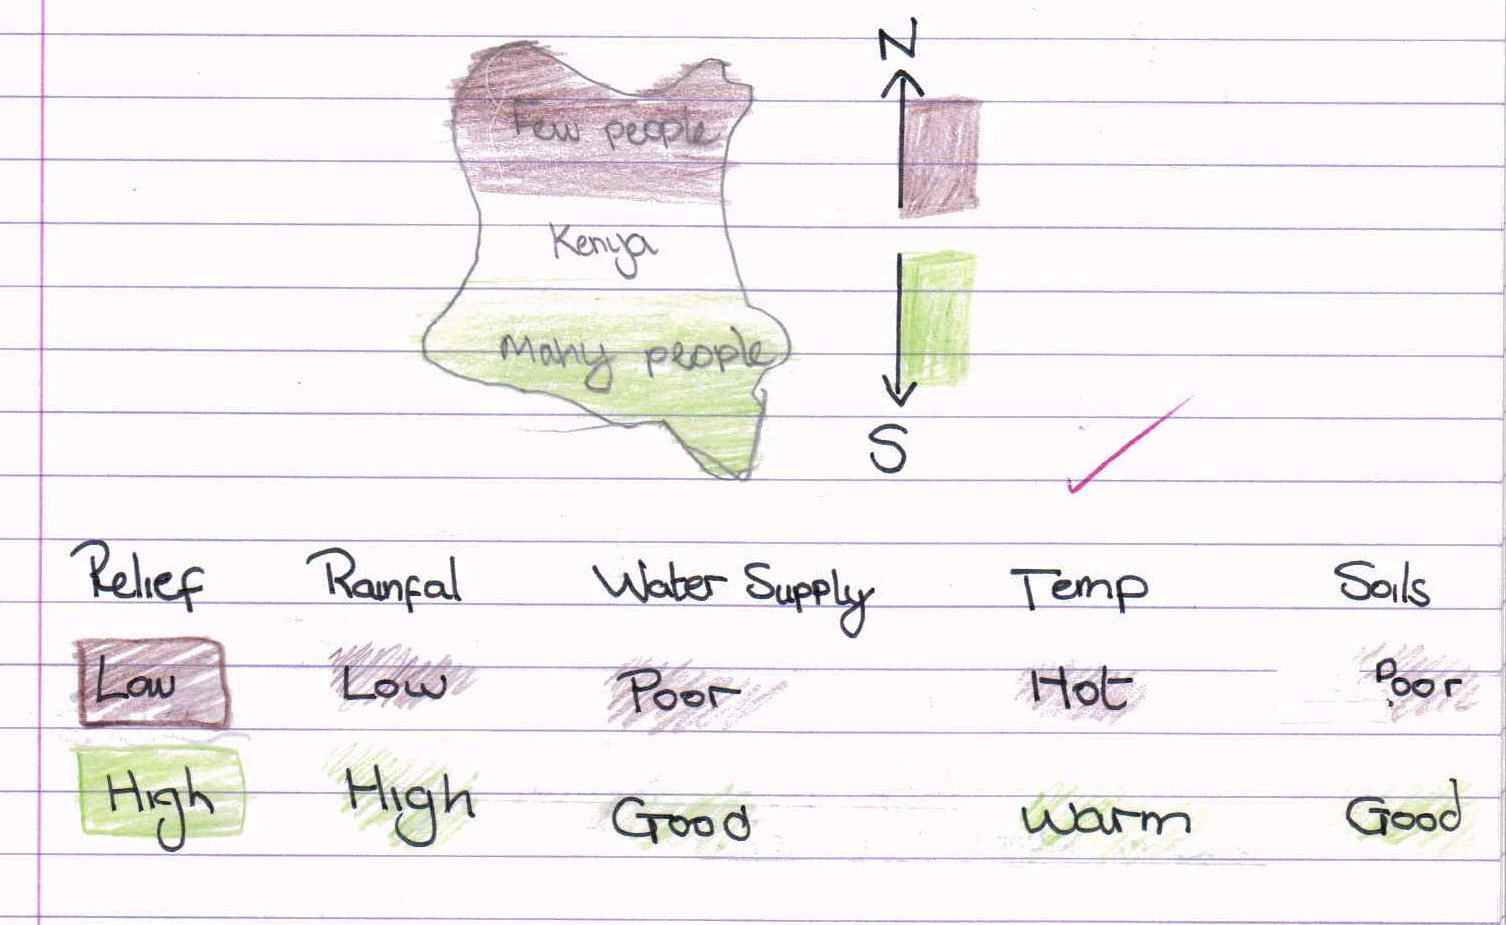 N
Few people
Kenya
Many people
S
Relief Rainfal Water Supply Temp Soils
Low Low Poor Hot Poor
High High Good Warm Good